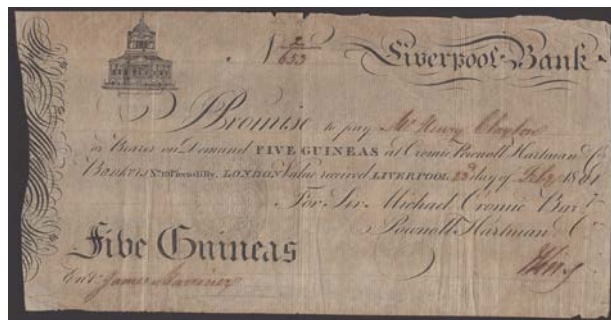 N 2/653 Liverpool Bank
I Promise to pay Mr Henry Clayton
or Bearer on Demand FIVE GUINEAS at Cromie Pownoll Hartman & Co
Bankers No Piccadilly, LONDON Value received LIVERPOOL 23d day of Feby 1801
For Sir Michael Cromie Bart
Pownoll Hartman & Co
Five Guineas
Entd James